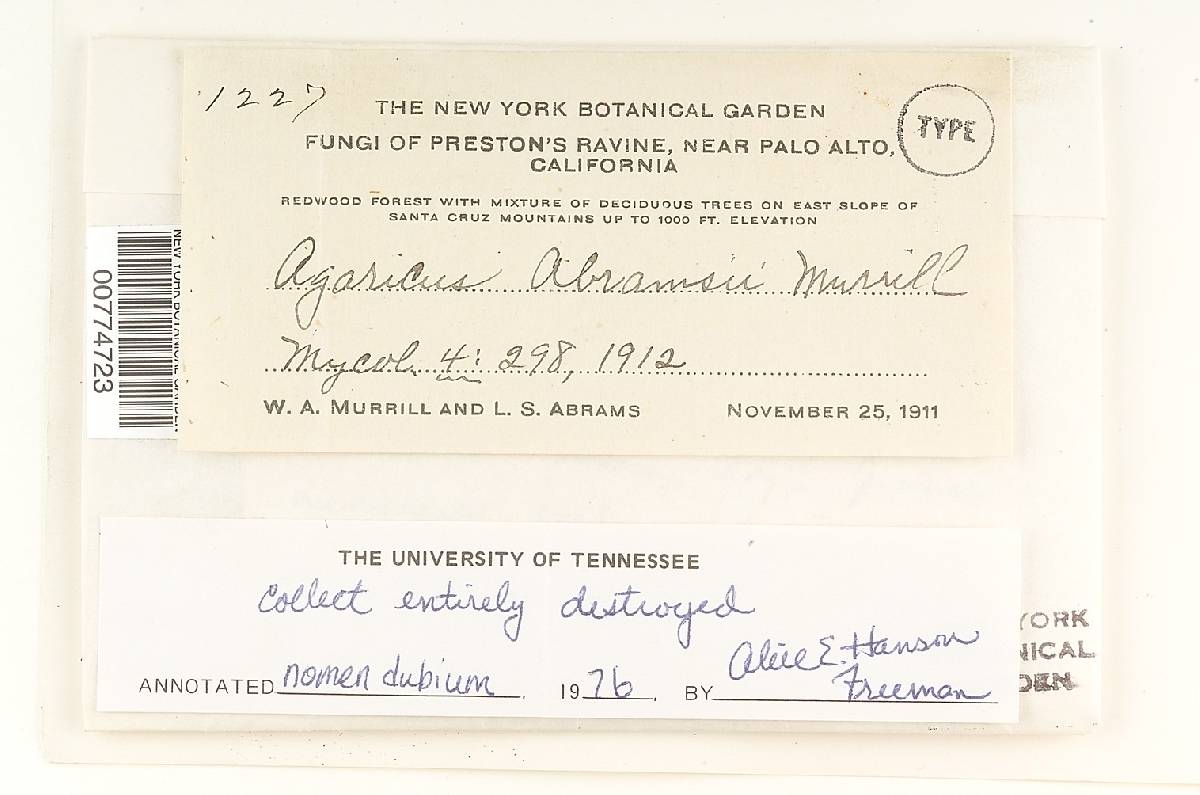 1227
THE NEW YORK BOTANICAL GARDEN
TYPE
FUNGI OF PRESTON'S RAVINE, NEAR PALO ALTO,
CALIFORNIA
REDWOOD FOREST WITH MIXTURE OF DECIDUOUS TREES ON EAST SLOPE OF
SANTA CRUZ MOUNTAINS UP TO 1000 FT. ELEVATION
Agaricus Abramsii Murrill
Mycol. 4: 298, 1912
W. A. MURRILL AND L. S. ABRAMS NOVEMBER 25, 1911
NEW YORK BOTANICAL GARDEN
00774723
THE UNIVERSITY OF TENNESSEE
collect entirely destroyed
ANNOTATED nomen dubium 1976 BY Alice E. Hanson
Freeman
YORK
NICAL
DEN